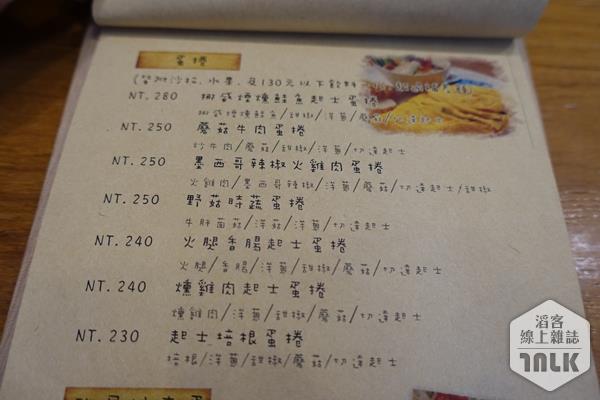 蛋捲
(皆附沙拉、水果、及130元以下飲料
NT. 280 挪威煙燻鮭魚起士蛋捲
挪威煙燻鮭魚/甜椒/洋蔥/蘑菇/切達起士
NT. 250 蘑菇牛肉蛋捲
炒牛肉/蘑菇/甜椒/洋蔥/切達起士
NT. 250 墨西哥辣椒火雞肉蛋捲
火雞肉/墨西哥辣椒/洋蔥/蘑菇/切達起士/甜椒
NT. 250 野菇時蔬蛋捲
牛肝菌菇/洋菇/洋蔥/切達起士
NT. 240 火腿香腸起士蛋捲
火腿/香腸/洋蔥/甜椒/蘑菇/切達起士
NT. 240 燻雞肉起士蛋捲
燻雞肉/洋蔥/甜椒/蘑菇/切達起士
NT. 230 起士培根蛋捲
培根/洋蔥/甜椒/蘑菇/切達起士
滔客
線上雜誌
TALK